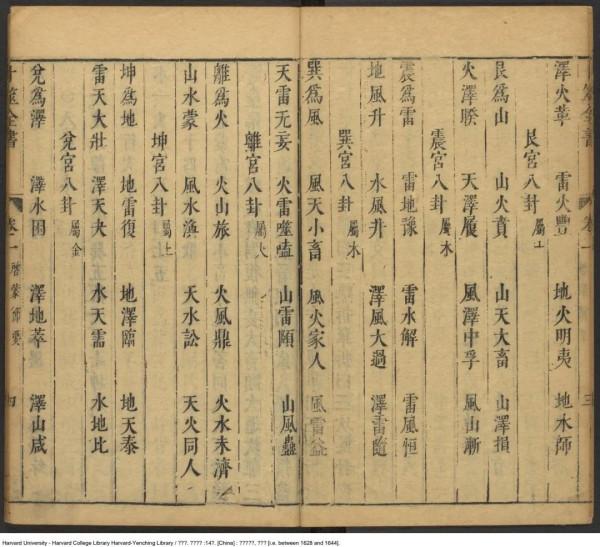 澤火革 雷火豐 地火明夷 地水師
艮宮八卦 屬土
艮爲山 山火賁 山天大畜 山澤損
火澤睽 天澤履 風澤中孚 風山漸
震宮八卦 屬木
震爲雷 雷地豫 雷水解 雷風恒
地風升 水風井 澤風大過 澤雷隨
巽宮八卦 屬木
巽爲風 風天小畜 風火家人 風雷益
天雷无妄 火雷噬嗑 山雷頤 山風蠱
離宮八卦 屬火
離爲火 火山旅 火風鼎 火水未濟
山水蒙 風水渙 天水訟 天火同人
坤宮八卦 屬土
坤爲地 地雷復 地澤臨 地天泰
雷天大壯 澤天夬 水天需 水地比
兌宮八卦 屬金
兌爲澤 澤水困 澤地萃 澤山咸
卜筮全書 卷一 啓蒙節要 四
Harvard University - Harvard College Library Harvard-Yenching Library / ???. ???? :14?. [China] : ?????, ??? [i.e. between 1628 and 1644].